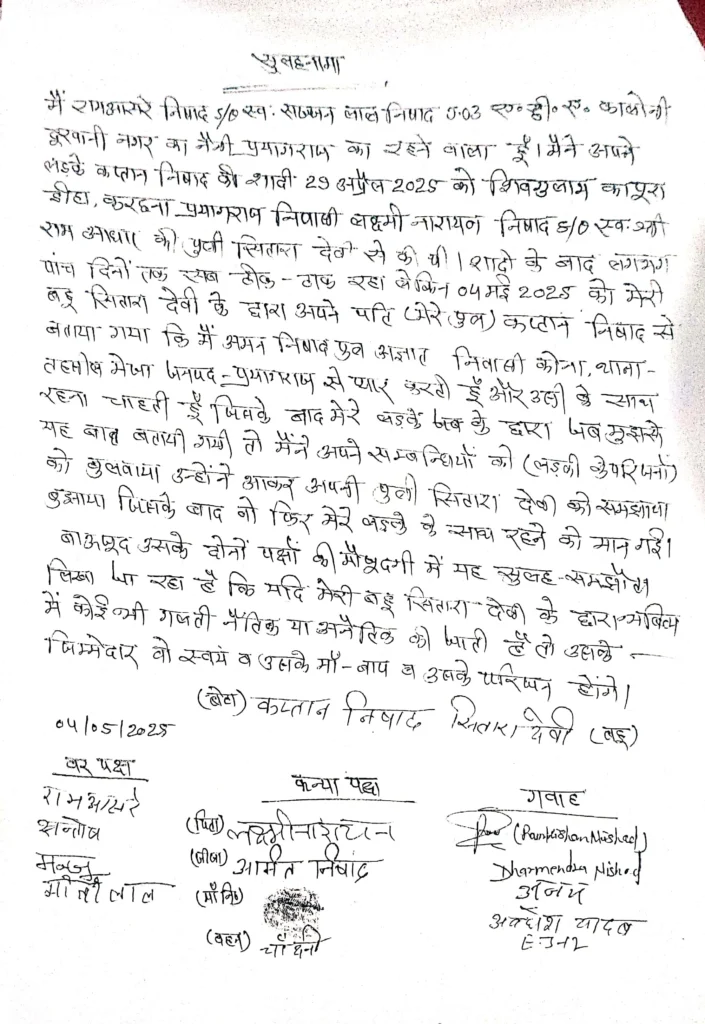 सुलहनामा
मैं रामआसरे निषाद S/O स्व. सज्जन लाल निषाद 503 ए. डी. ए. कालोनी
दूरवानी नगर का नैनी प्रयागराज का रहने वाला हूँ। मैंने अपने
लड़के कप्तान निषाद की शादी 29 अप्रैल 2025 को शिवगुलाम का पूरा
डीहा, करछना प्रयागराज निवासी लक्ष्मी नारायन निषाद S/O स्व. श्री
राम आधार की पुत्री सितारा देवी से की थी। शादी के बाद लगभग
पांच दिनों तक सब ठीक-ठाक रहा लेकिन 04 मई 2025 को मेरी
बहू सितारा देवी के द्वारा अपने पति (मेरे पुत्र) कप्तान निषाद से
बताया गया कि मैं अमन निषाद पुत्र अज्ञात निवासी कोना, थाना-
तहसील मेजा जनपद-प्रयागराज से प्यार करती हूँ और उसी के साथ
रहना चाहती हूँ जिसके बाद मेरे लड़के के द्वारा जब मुझसे
यह बात बतायी गयी तो मैंने अपने सम्बन्धियों को (लड़की के परिजनों)
को बुलवाया उन्होंने आकर अपनी पुत्री सितारा देवी को समझाया
बुझाया जिसके बाद वो फिर मेरे लड़के के साथ रहने को मान गई।
बाजूद उसके दोनों पक्षों की मौजूदगी में यह सुलह-समझौता
लिखा जा रहा है कि यदि मेरी बहू सितारा देवी के द्वारा भविष्य
में कोई भी गलती नैतिक या अनैतिक की जाती है तो उसके
जिम्मेदार वो स्वयं व उसके माँ-बाप व उसके परिजन होंगे।
(बेटा) कप्तान निषाद सितारा देवी (बहू)
04/05/2025
वर पक्ष
रामआसरे
सन्तोष
मन्जू
मोती लाल
कन्या पक्ष
(पिता) लक्ष्मीनारायन
(जीजा) अमित निषाद
(माँ नि०)
(बहन) चाँदनी
गवाह
(Ramkishan Nishad)
Dharmendra Nishad
अजय
अवधेश यादव